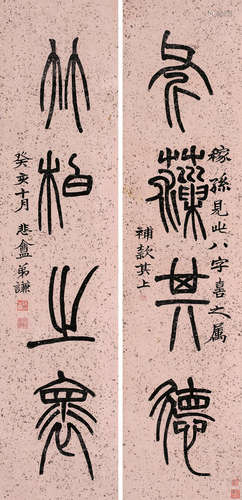 其德
稼孫見此八字喜之屬
補款其上
竹柏之褱
癸亥十月悲盦弟謙